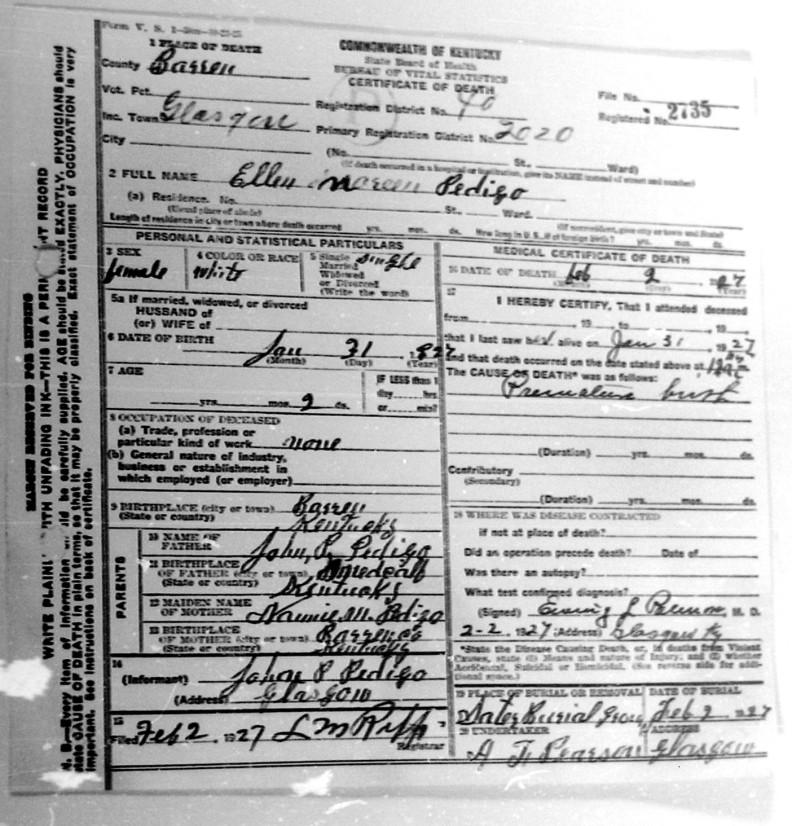 Form V. S. 1
COMMONWEALTH OF KENTUCKY
State Board of Health
BUREAU OF VITAL STATISTICS
CERTIFICATE OF DEATH
1 PLACE OF DEATH
County Barren
Vot. Pct.
Inc. Town Glasgow
City
Registration District No. 40
Primary Registration District No. 2020
File No.
Registered No. 2735
(No. St., Ward)
(If death occurred in a hospital or institution, give its NAME instead of street and number)
2 FULL NAME Ellen Pedigo
(a) Residence. No. St., Ward.
(Usual place of abode) (If nonresident, give city or town and State)
Length of residence in city or town where death occurred yrs. mos. ds. How long in U. S., if of foreign birth? yrs. mos. ds.
PERSONAL AND STATISTICAL PARTICULARS
3 SEX female
4 COLOR OR RACE white
5 Single Married Widowed or Divorced (Write the word) single
5a If married, widowed, or divorced
HUSBAND of
(or) WIFE of
6 DATE OF BIRTH Jan 31
(Month) (Day) (Year)
7 AGE
yrs. mos. 2 ds.
IF LESS than 1
day hrs.
or min?
8 OCCUPATION OF DECEASED
(a) Trade, profession or
particular kind of work none
(b) General nature of industry,
business or establishment in
which employed (or employer)
9 BIRTHPLACE (city or town) Barren
(State or country) Kentucky
PARENTS
10 NAME OF
FATHER John P. Pedigo
11 BIRTHPLACE
OF FATHER (city or town)
(State or country) Kentucky
12 MAIDEN NAME
OF MOTHER Nannie M. Pedigo
13 BIRTHPLACE
OF MOTHER (city or town) Barren Co
(State or country) Kentucky
14
(Informant) John P Pedigo
(Address) Glasgow
15
Filed Feb 2, 1927 L M
Registrar
MEDICAL CERTIFICATE OF DEATH
16 DATE OF DEATH Feb 2 1927
(Month) (Day) (Year)
17
I HEREBY CERTIFY, That I attended deceased
from 19 to 19
that I last saw h alive on Jan 31 1927
and that death occurred on the date stated above at
The CAUSE OF DEATH* was as follows:
Premature birth
(Duration) yrs. mos. ds.
Contributory
(Secondary)
(Duration) yrs. mos. ds.
18 WHERE WAS DISEASE CONTRACTED
if not at place of death?
Did an operation precede death? Date of
Was there an autopsy?
What test confirmed diagnosis?
(Signed) M. D.
2-2, 1927 (Address) Glasgow Ky
*State the Disease Causing Death, or, in deaths from Violent
Causes, state (1) Means and nature of Injury, and (2) whether
Accidental, Suicidal or Homicidal. (See reverse side for addi-
tional space.)
19 PLACE OF BURIAL OR REMOVAL
Burial
DATE OF BURIAL
Feb 2 1927
20 UNDERTAKER
A T Pearson
ADDRESS
Glasgow
MARGIN RESERVED FOR BINDING
WRITE PLAINLY WITH UNFADING INK—THIS IS A PERMANENT RECORD
N. B.—Every item of information should be carefully supplied. AGE should be stated EXACTLY. PHYSICIANS should
state CAUSE OF DEATH in plain terms, so that it may be properly classified. Exact statement of OCCUPATION is very
important. See instructions on back of certificate.